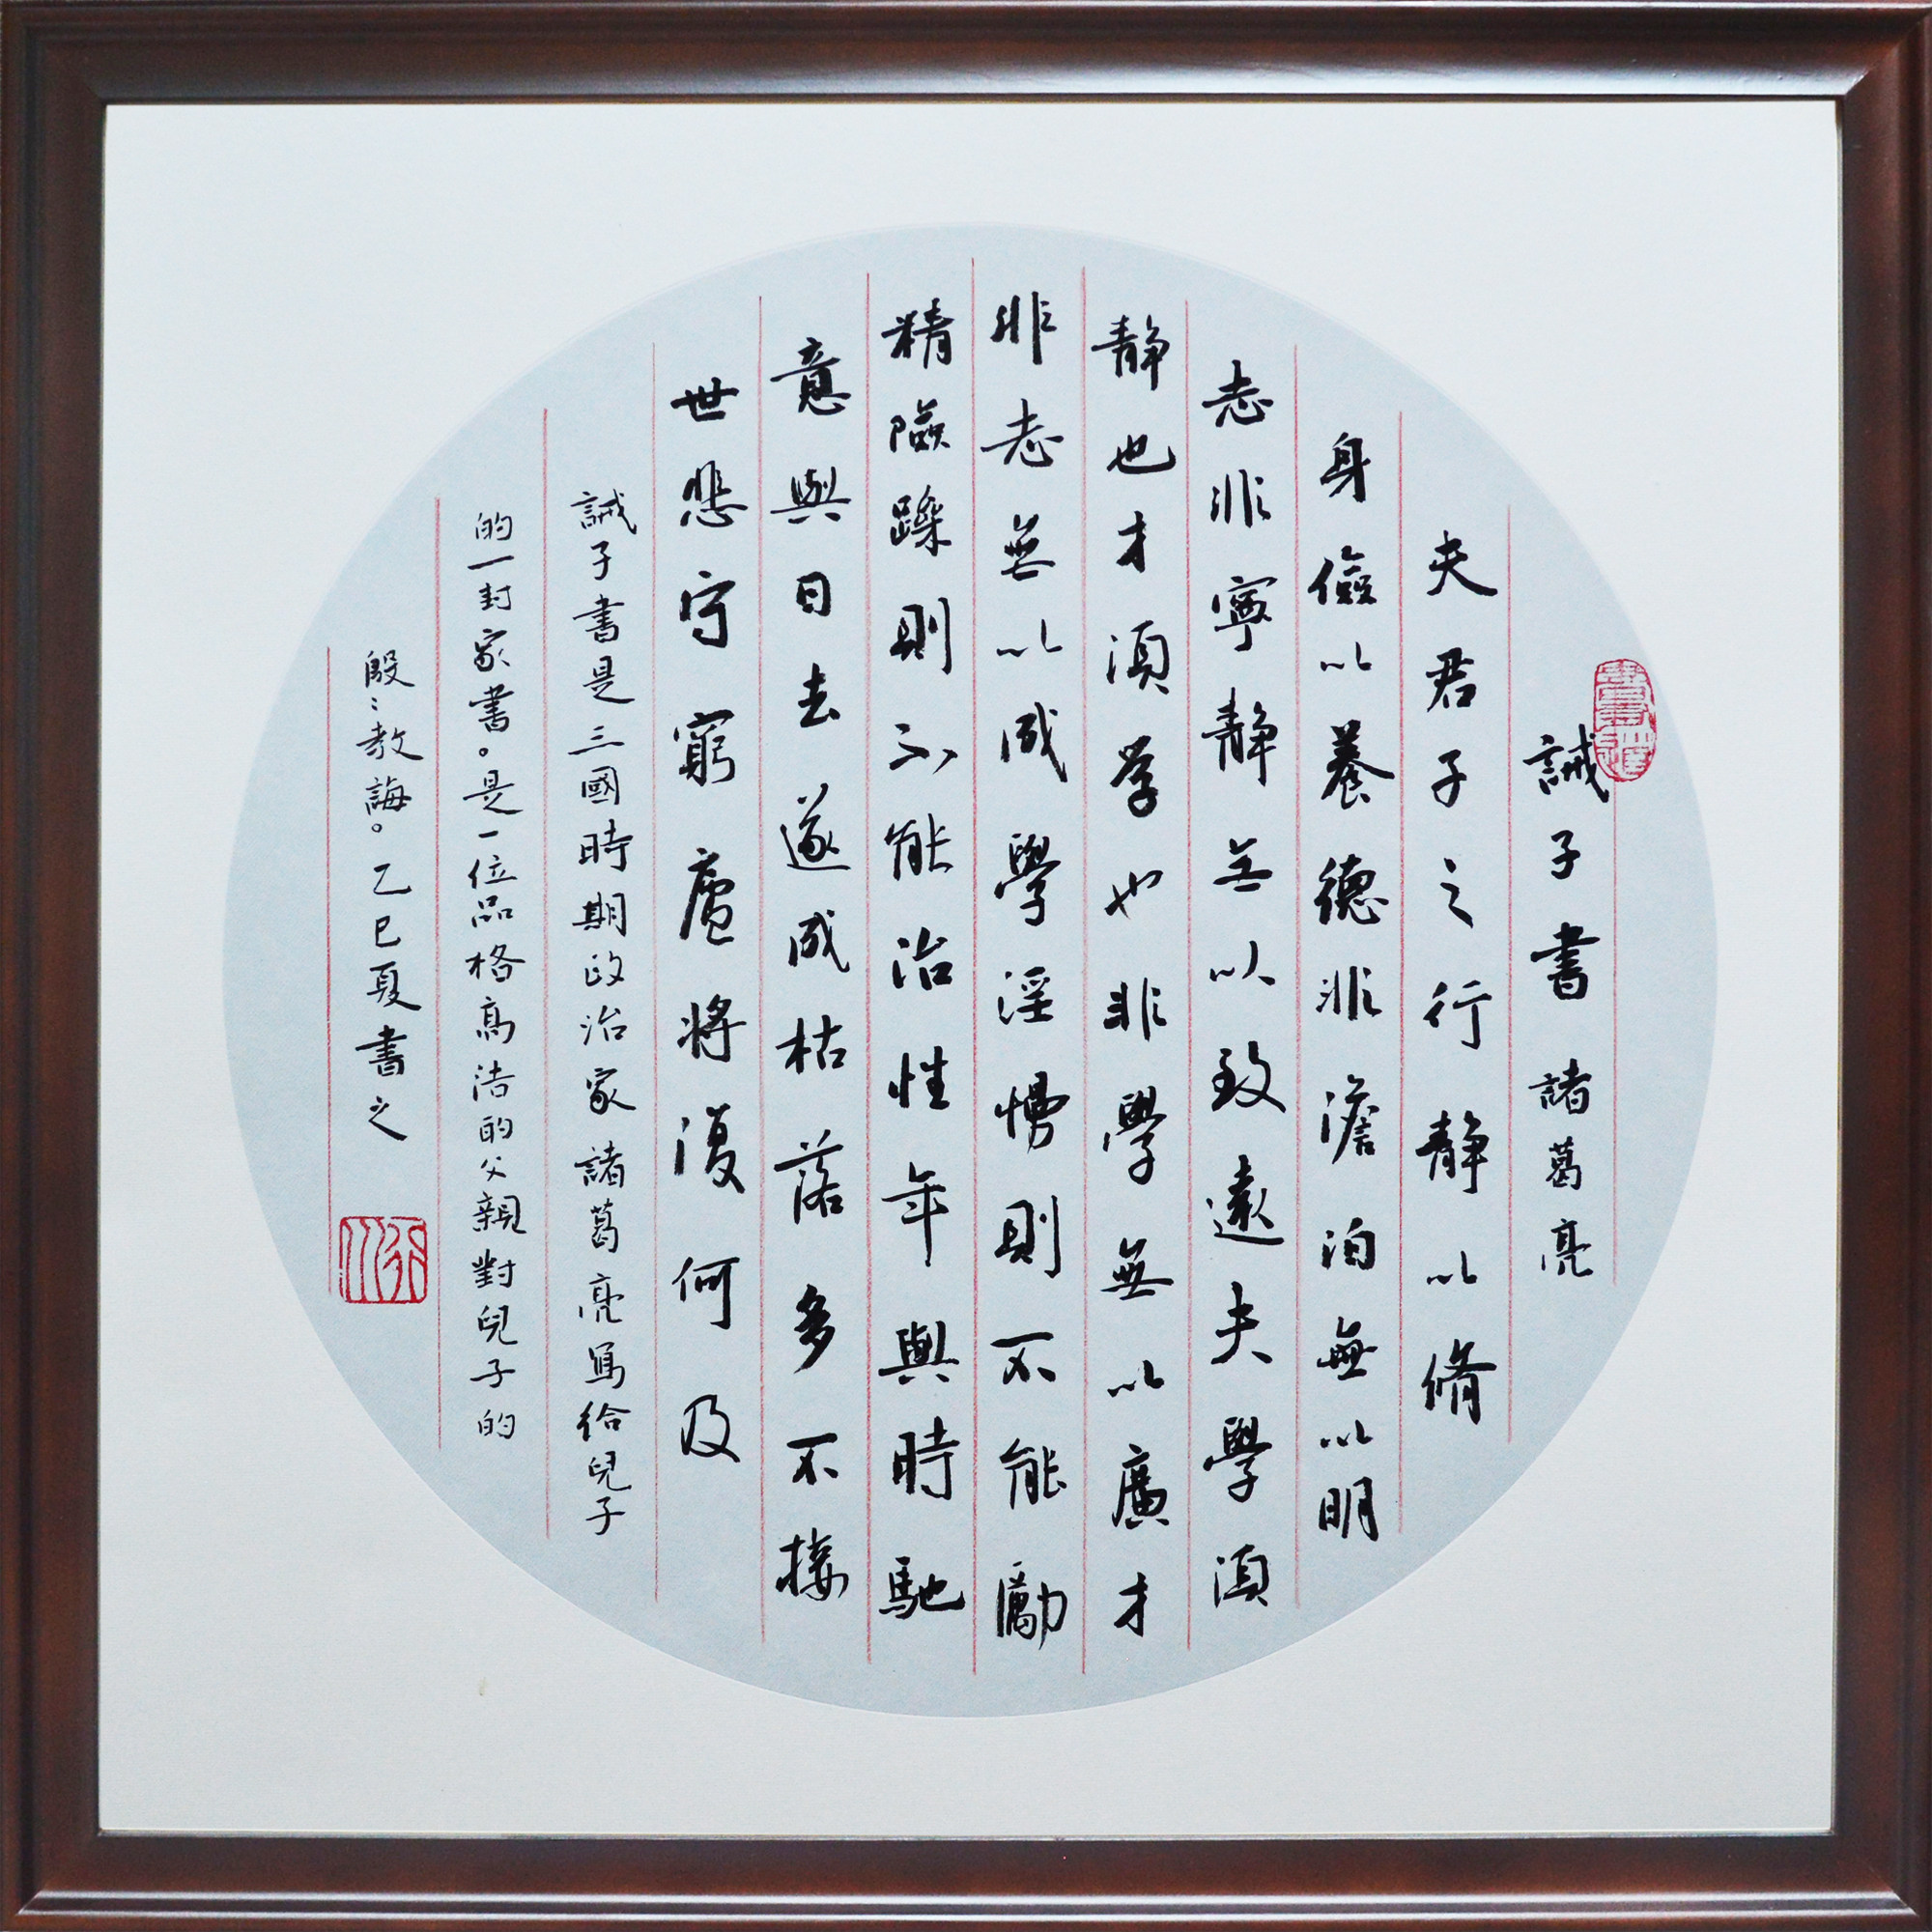 誡子書 諸葛亮
夫君子之行静以脩
身儉以養德非澹泊無以明
志非寧静无以致遠夫學須
静也才須学也非學無以廣才
非志無以成學淫慢則不能勵
精險躁則不能治性年與時馳
意與日去遂成枯落多不接
世悲守窮廬将復何及
誡子書是三國時期政治家諸葛亮寫给兒子
的一封家書。是一位品格高洁的父親對兒子的
殷〻教誨。乙巳夏書之